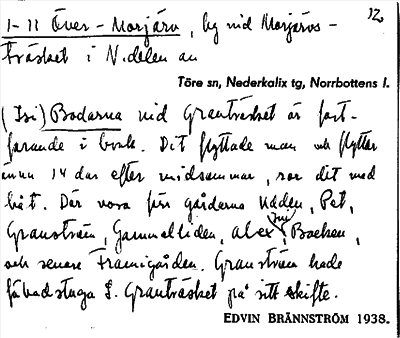 12.
1-11 Över-Morjärv, by vid Morjärvs-
träsket i N.delen av
Töre sn, Nederkalix tg, Norrbottens l.
(Isi) Bodarna vid Granträsket är fort-
farande i bruk. Dit flyttade man och flytter
ännu 14 dar efter midsommar, ror dit med
båt. Där vora förr gårdarna Naden, Pet,
Granström, Gammelliden, Alex, Backen,
och senare Framigården. Granström hade
fäbodstuga S. Granträsket på sitt skifte.
EDVIN BRÄNNSTRÖM 1938.